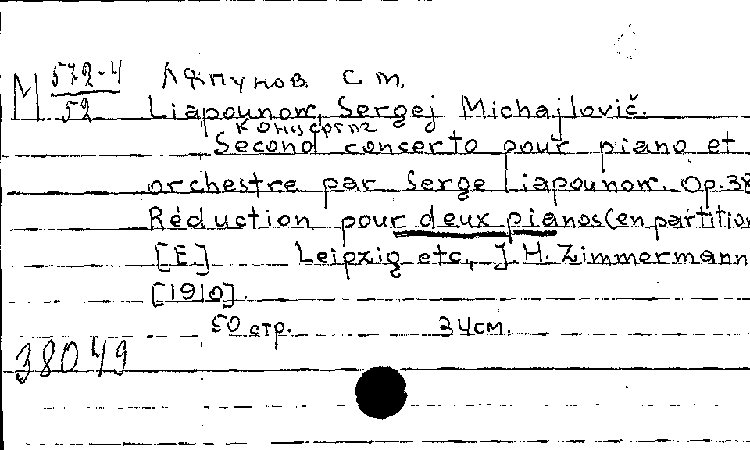 М 572-4
52
Ляпунов С. М.
Liapounow, Sergej Michajlovič.
концерт
Second concerto pour piano et
orchestre par Serge Liapounow. Op.38
Réduction pour deux pianos (en partition
[E] Leipzig etc, J. H. Zimmermann
[1910].
50 стр. 34 см.
38049